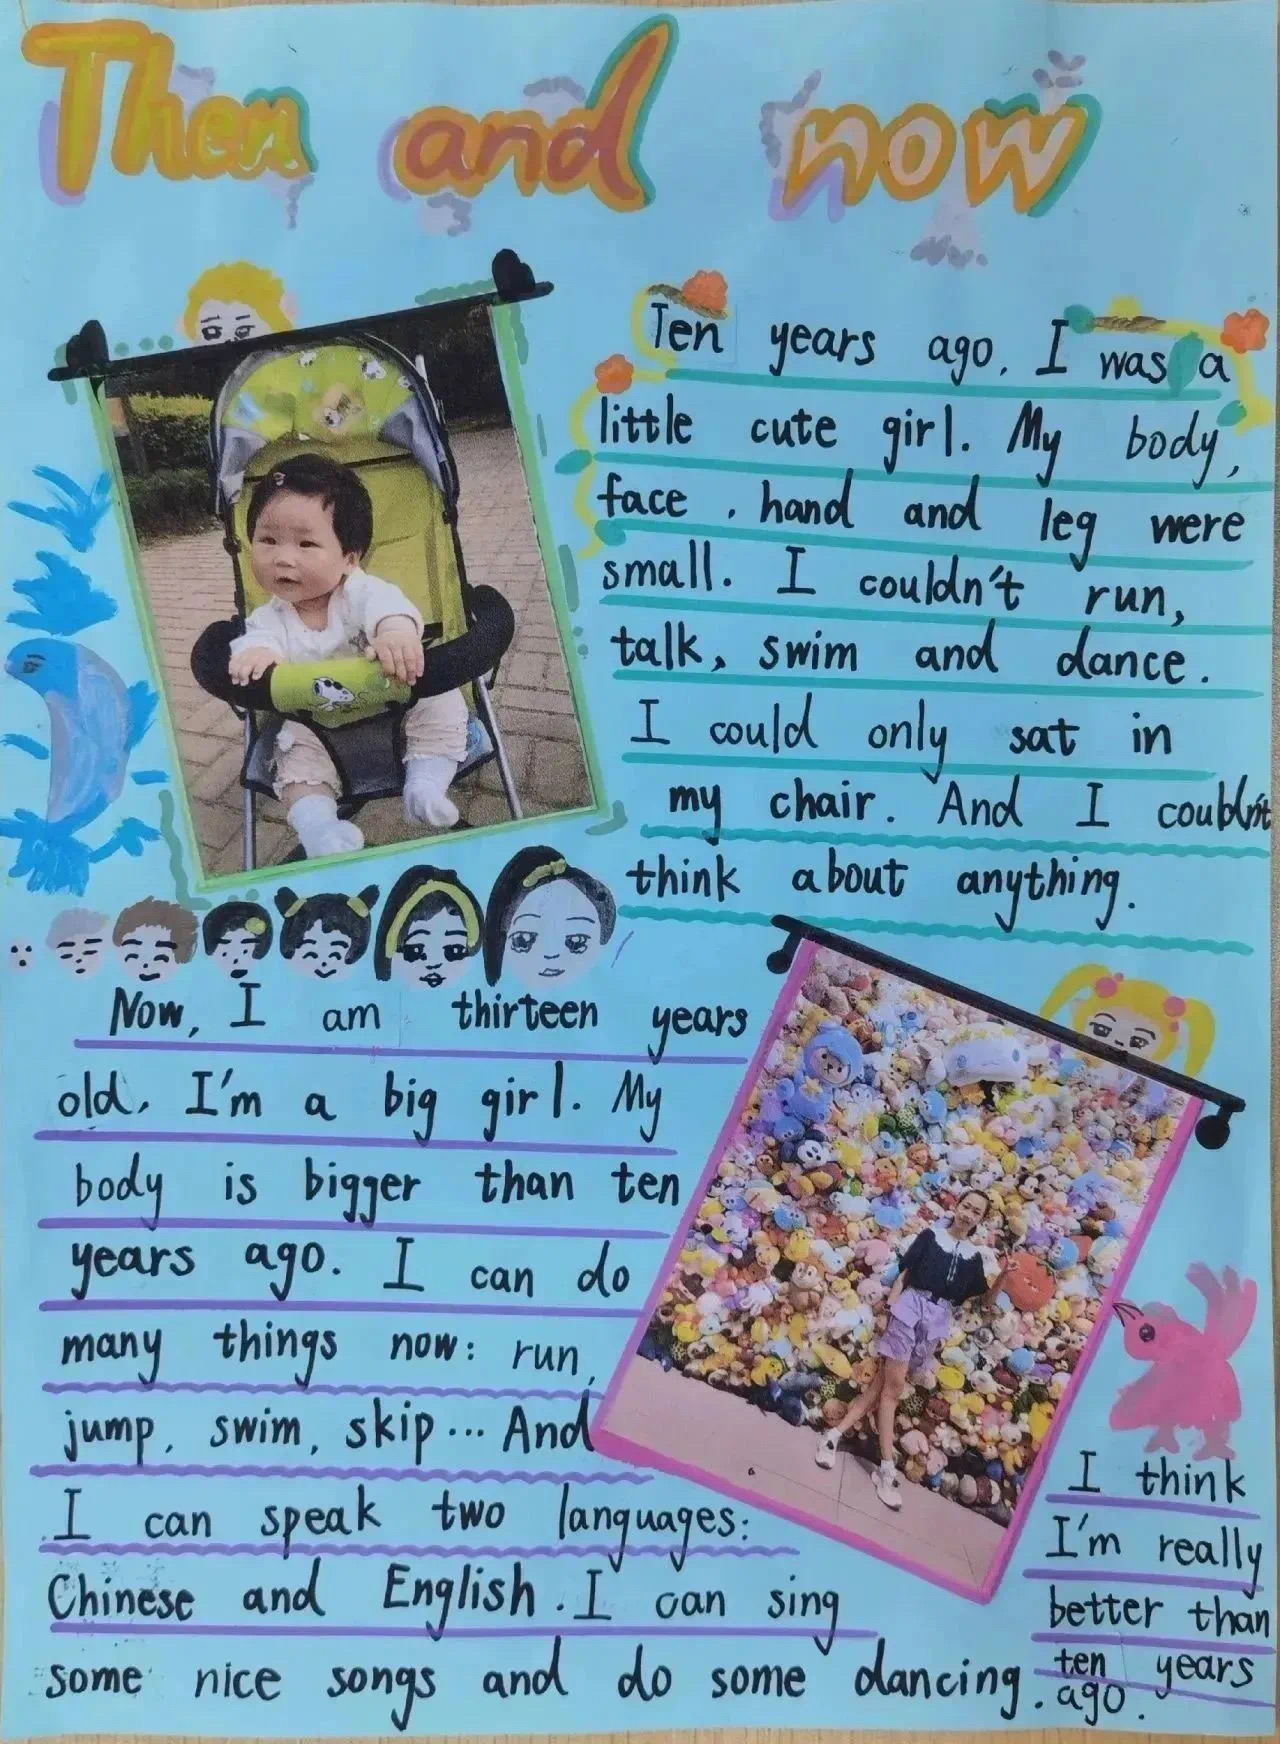 Then and now
Ten years ago, I was a
little cute girl. My body,
face, hand and leg were
small. I couldn't run,
talk, swim and dance.
I could only sat in
my chair. And I couldn't
think about anything.
Now, I am thirteen years
old, I'm a big girl. My
body is bigger than ten
years ago. I can do
many things now: run,
jump, swim, skip... And
I can speak two languages:
Chinese and English. I can sing
some nice songs and do some dancing.
I think
I'm really
better than
ten years
ago.